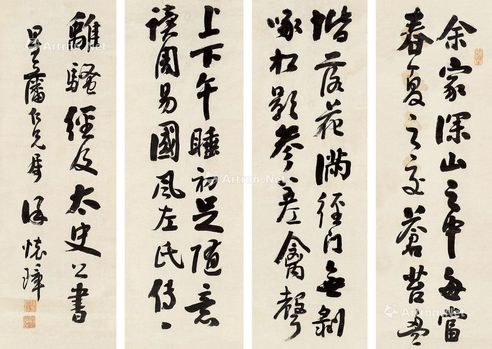 余家深山之中每當
春夏之交蒼苔盈
階落花滿徑門無剝
啄松影參差禽聲
上下午睡初足隨意
讀周易國風左氏傳
離騷經及太史公書
星藩仁兄屬 懷璋
Artron.Net
Artron.Net
Artron.Net
Artron.Net